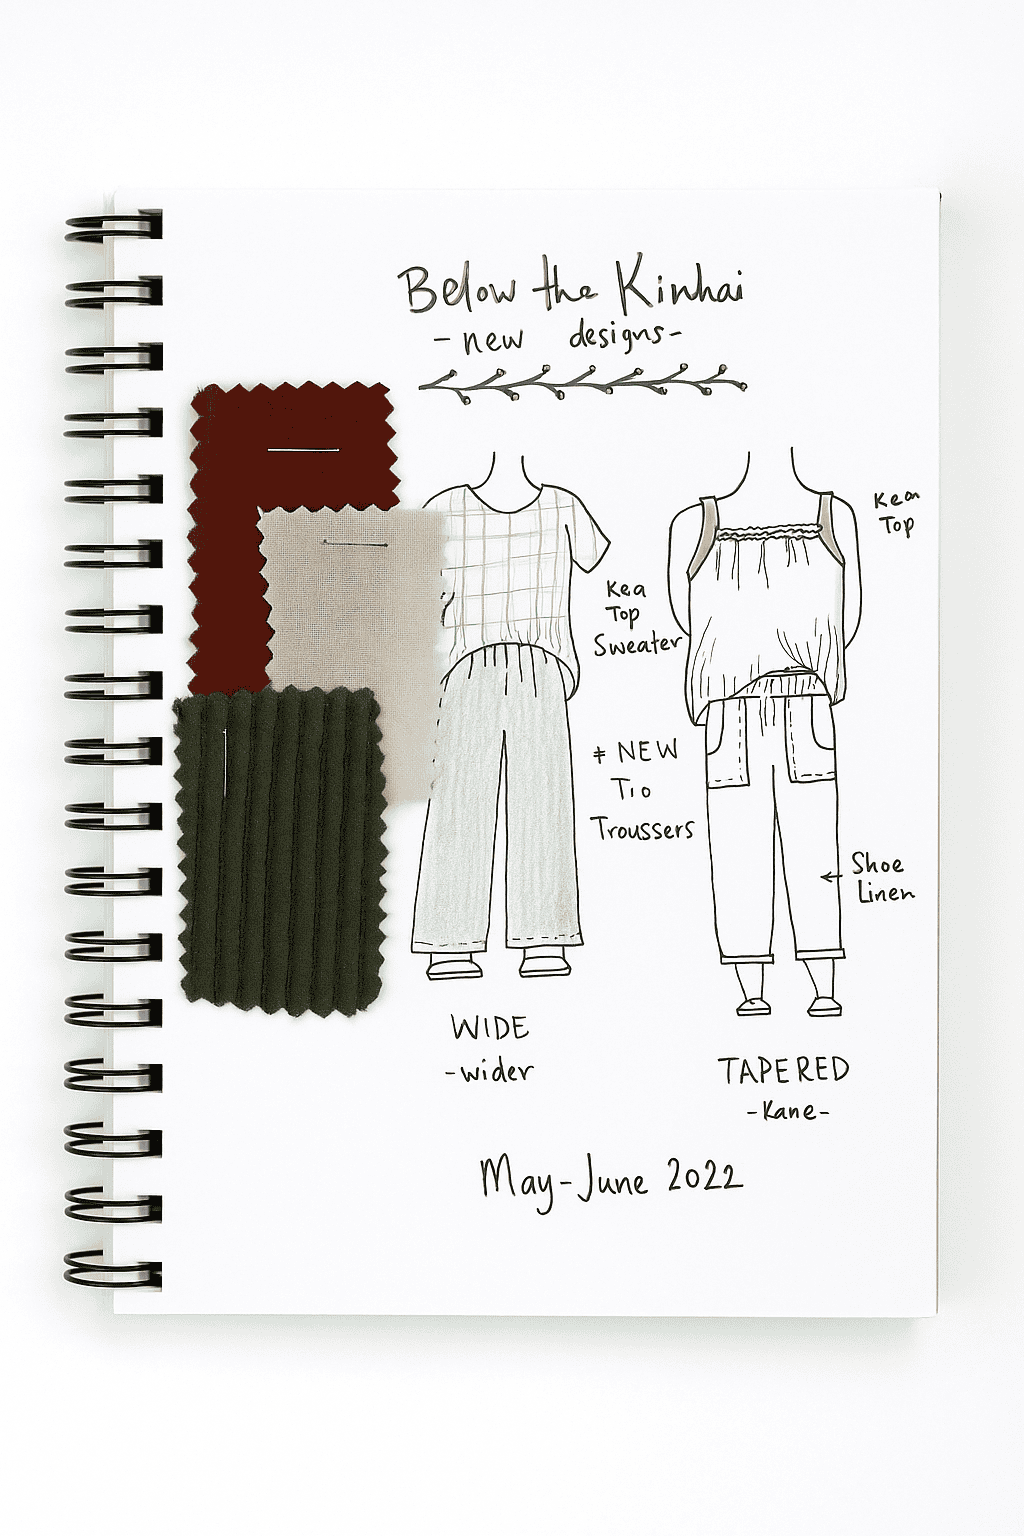 Below the Kinhai
-new designs-
Kea
Top
Kea
Top
Sweater
‡ NEW
Tio
Troussers
← Shoe
Linen
WIDE
-wider
TAPERED
-Kane-
May-June 2022